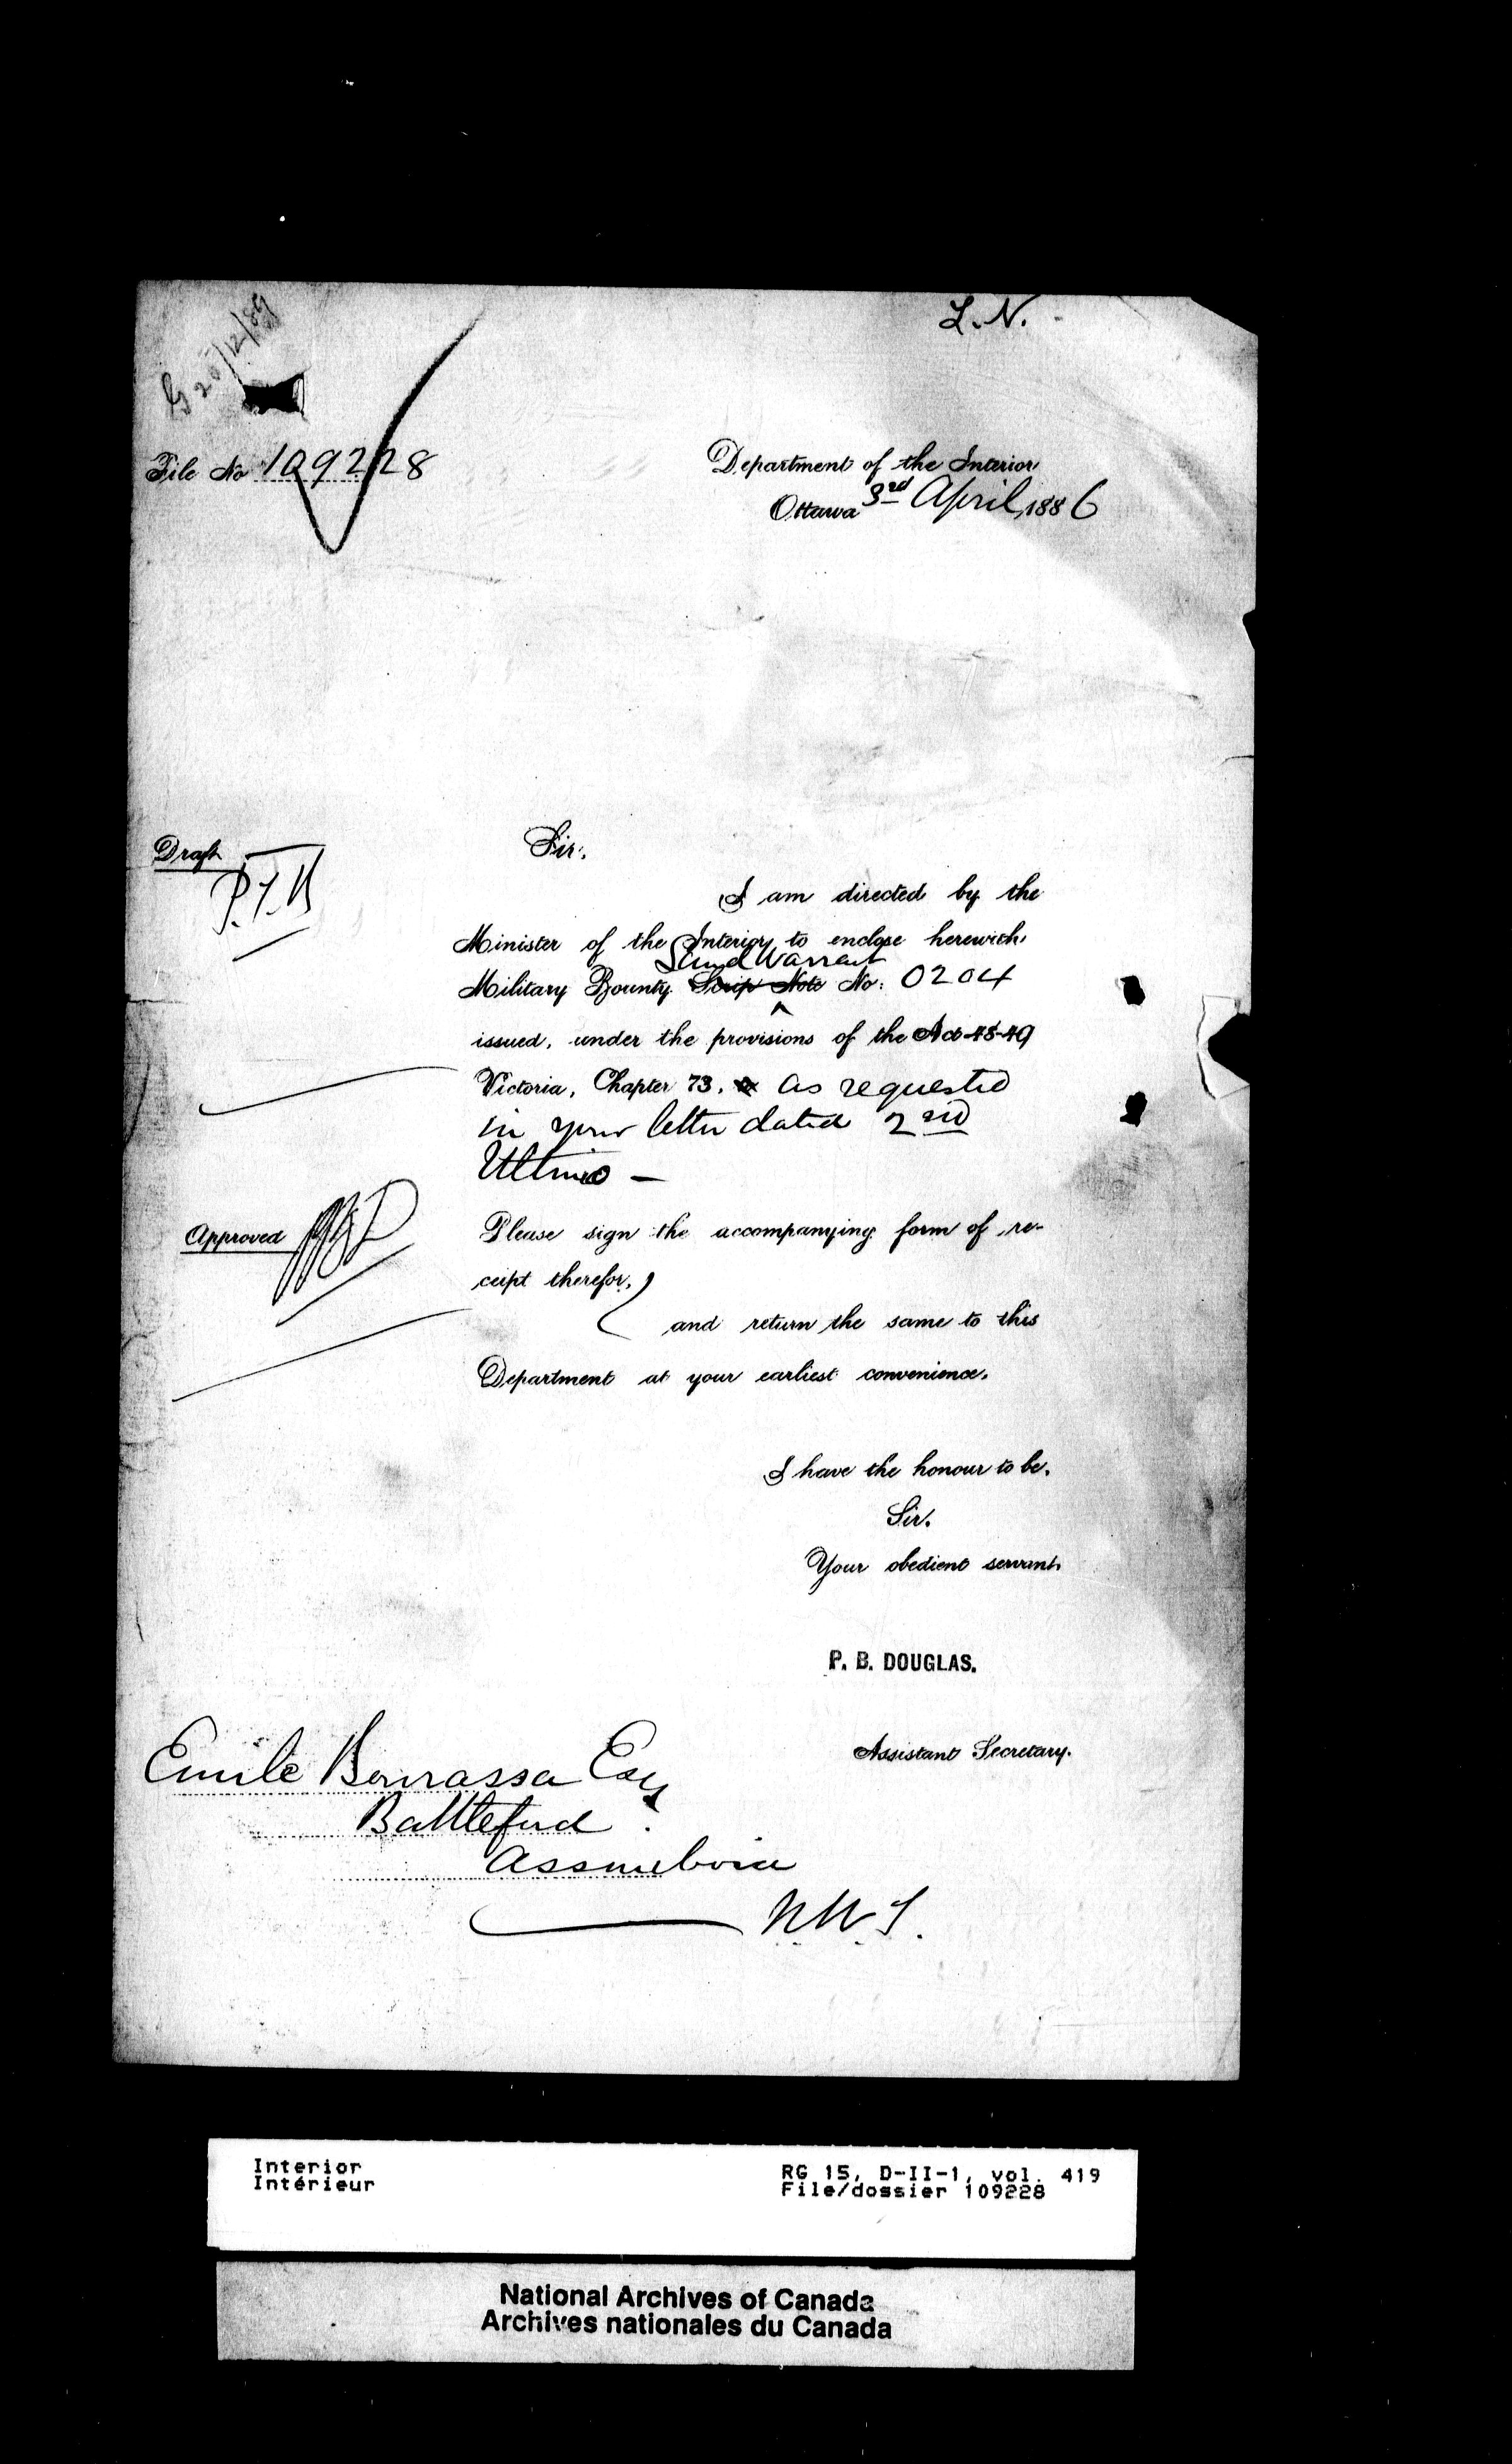 L.N.
20/12/89
File No 109228
Department of the Interior
Ottawa 3rd April, 1886
Draft
Sir:
I am directed by the
Minister of the Interior, to enclose herewith
Land Warrant
Military Bounty Scrip Note No: 0204
issued, under the provisions of the Act 48-49
Victoria, Chapter 73, as requested
in your letter dated 2nd
Ultimo —
Approved
Please sign the accompanying form of re-
ceipt therefor,
and return the same to this
Department at your earliest convenience.
I have the honour to be,
Sir.
Your obedient servant.
P. B. DOUGLAS.
Assistant Secretary.
Emile Bourassa Esq
Battleford.
Assiniboia
N.W.T.
Interior
Intérieur
RG 15, D-II-1, vol. 419
File/dossier 109228
National Archives of Canada
Archives nationales du Canada